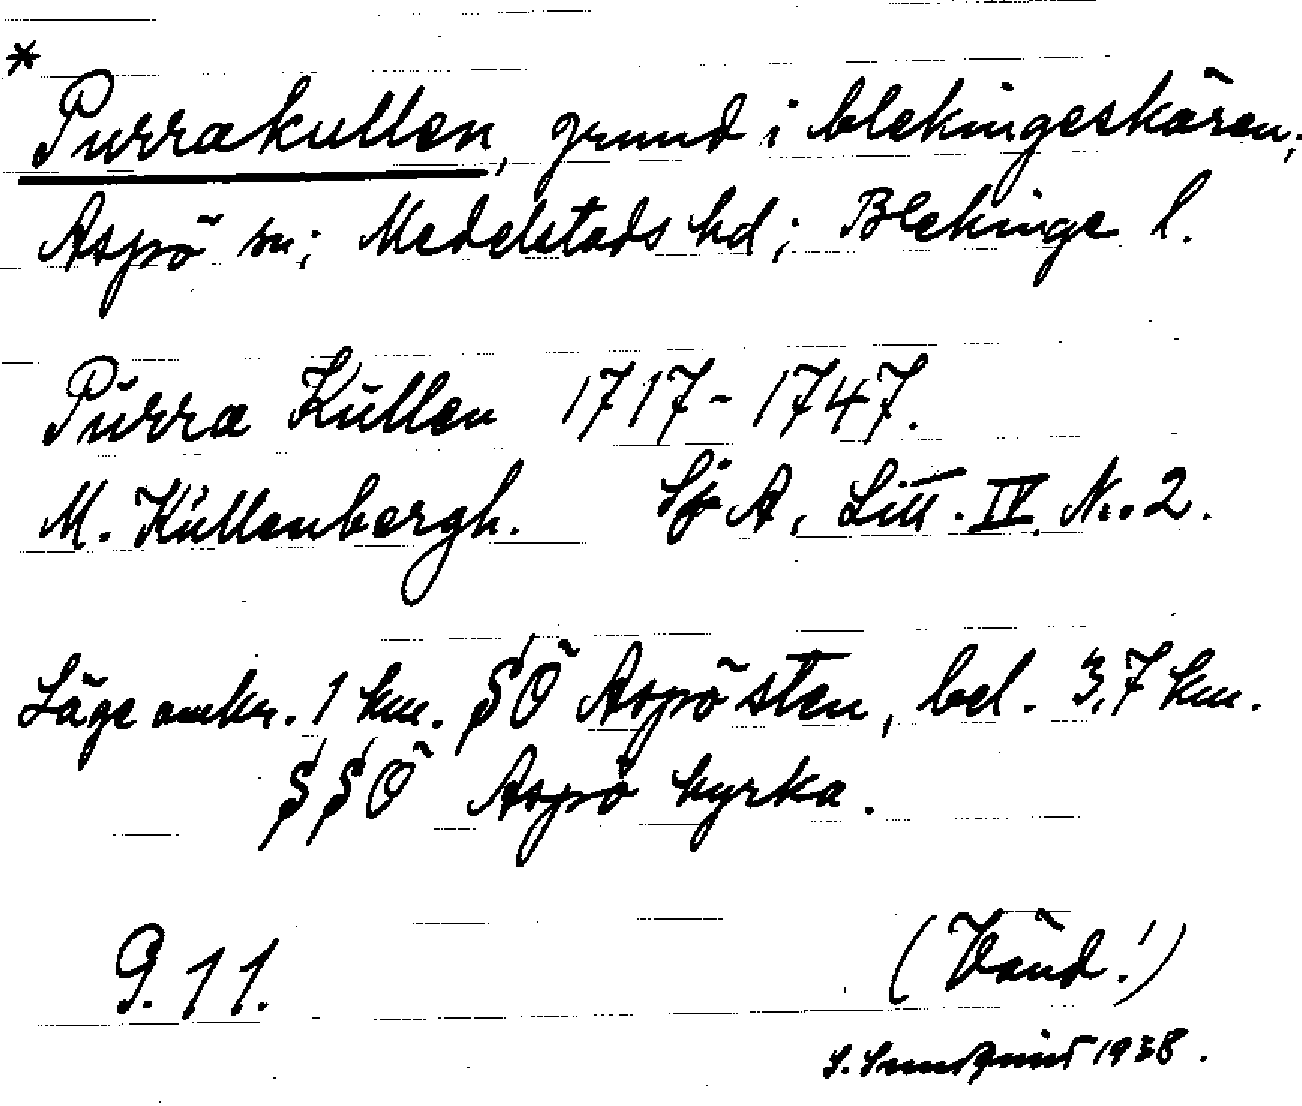 * Purrakullen, grund i blekingeskären;
Aspö sn; Medelstads hd; Blekinge l.
Pŭrra Kŭllen 1717-1747.
M. Kŭllenbergh. Sj A, Litt. IV. N:o 2.
Läge omkr. 1 km. SÖ Aspö sten, bel. 3,7 km.
SSÖ Aspö kyrka.
9.11. (Vänd!)
S. Sundquist 1938.